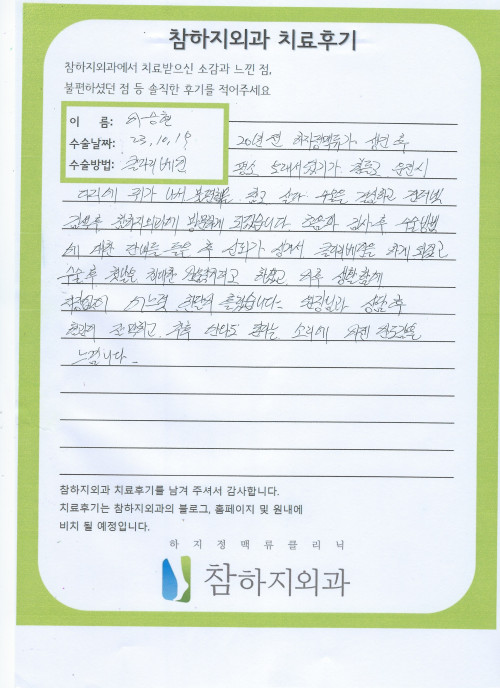 참하지외과 치료후기
참하지외과에서 치료받으신 소감과 느낀 점,
불편하셨던 점 등 솔직한 후기를 적어주세요
이 름: 이승현
수술날짜: 23, 10, 19
수술방법: 클라리베인
20년 전 하지정맥류가 생긴 후
평소 오래서있기가 힘들고 운전시
다리에 쥐가 나서 불편함을 참고 살다 수술을 결심하고 인터넷
검색후 참하지외과에 방문하게 되었습니다. 초음파 검사후 수술방법
에 대한 안내를 들은 후 신뢰가 생겨서 클라리베인을 하게 되었고
수술후 첫날은 최대한 하려고 하였고 이후 생활함에
어느덧 한달이 흘렀습니다. 원장님과 상담후
잘 되었고, 추후 된다는 소리에
느낍니다.
참하지외과 치료후기를 남겨 주셔서 감사합니다.
치료후기는 참하지외과의 블로그, 홈페이지 및 원내에
비치 될 예정입니다.
하지정맥류클리닉
참하지외과